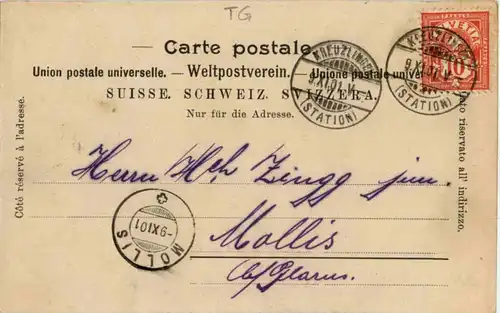 TG
Carte postale.
Union postale universelle. — Weltpostverein. — Unione postale universale.
SUISSE. SCHWEIZ. SVIZZERA.
Nur für die Adresse.
Côté réservé à l'adresse.
Lato riservato all' indirizzo.
KREUZLINGEN
9.XI.01.V.
(STATION)
KREUZLINGEN
9.XI.01.V.
(STATION)
HELVETIA
10
Herrn Hch Zingg jun.
Mollis
b/Glarus.
-9XI01
MOLLIS